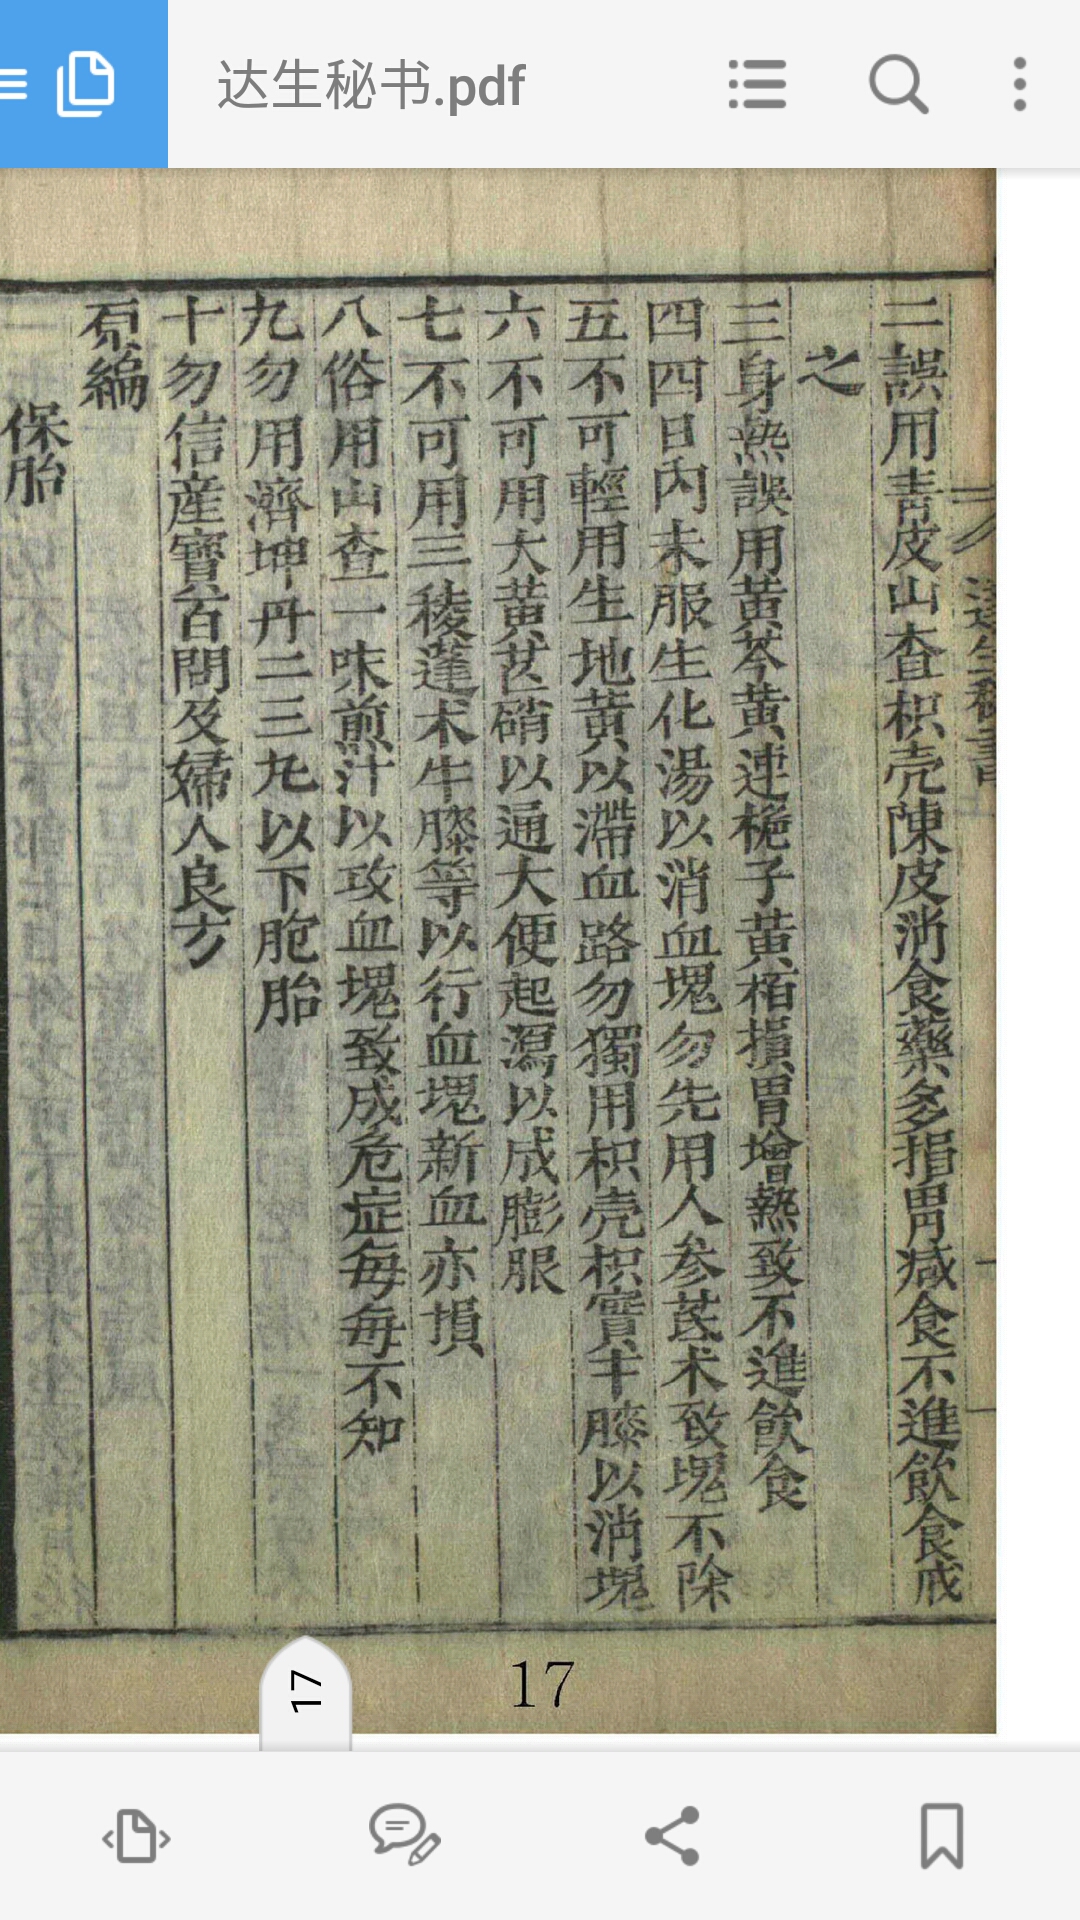 达生秘书.pdf
二誤用青皮山査枳壳陳皮消食藥多損胃减食不進飲食戒
之
三身热誤用黄芩黄連梔子黄栢損胃增熱致不進飲食
四四日内未服生化湯以消血塊勿先用人参芪术致塊不除
五不可輕用生地黄以滯血路勿獨用枳壳枳實牛膝以消塊
六不可用大黄芒硝以通大便起瀉以成膨脹
七不可用三稜蓬术牛膝等以行血塊新血亦損
八俗用山查一味煎汁以攻血塊致成危症每每不知
九勿用濟坤丹二三丸以下胞胎
十勿信産寶百問及婦人良方
原編
保胎
17
17